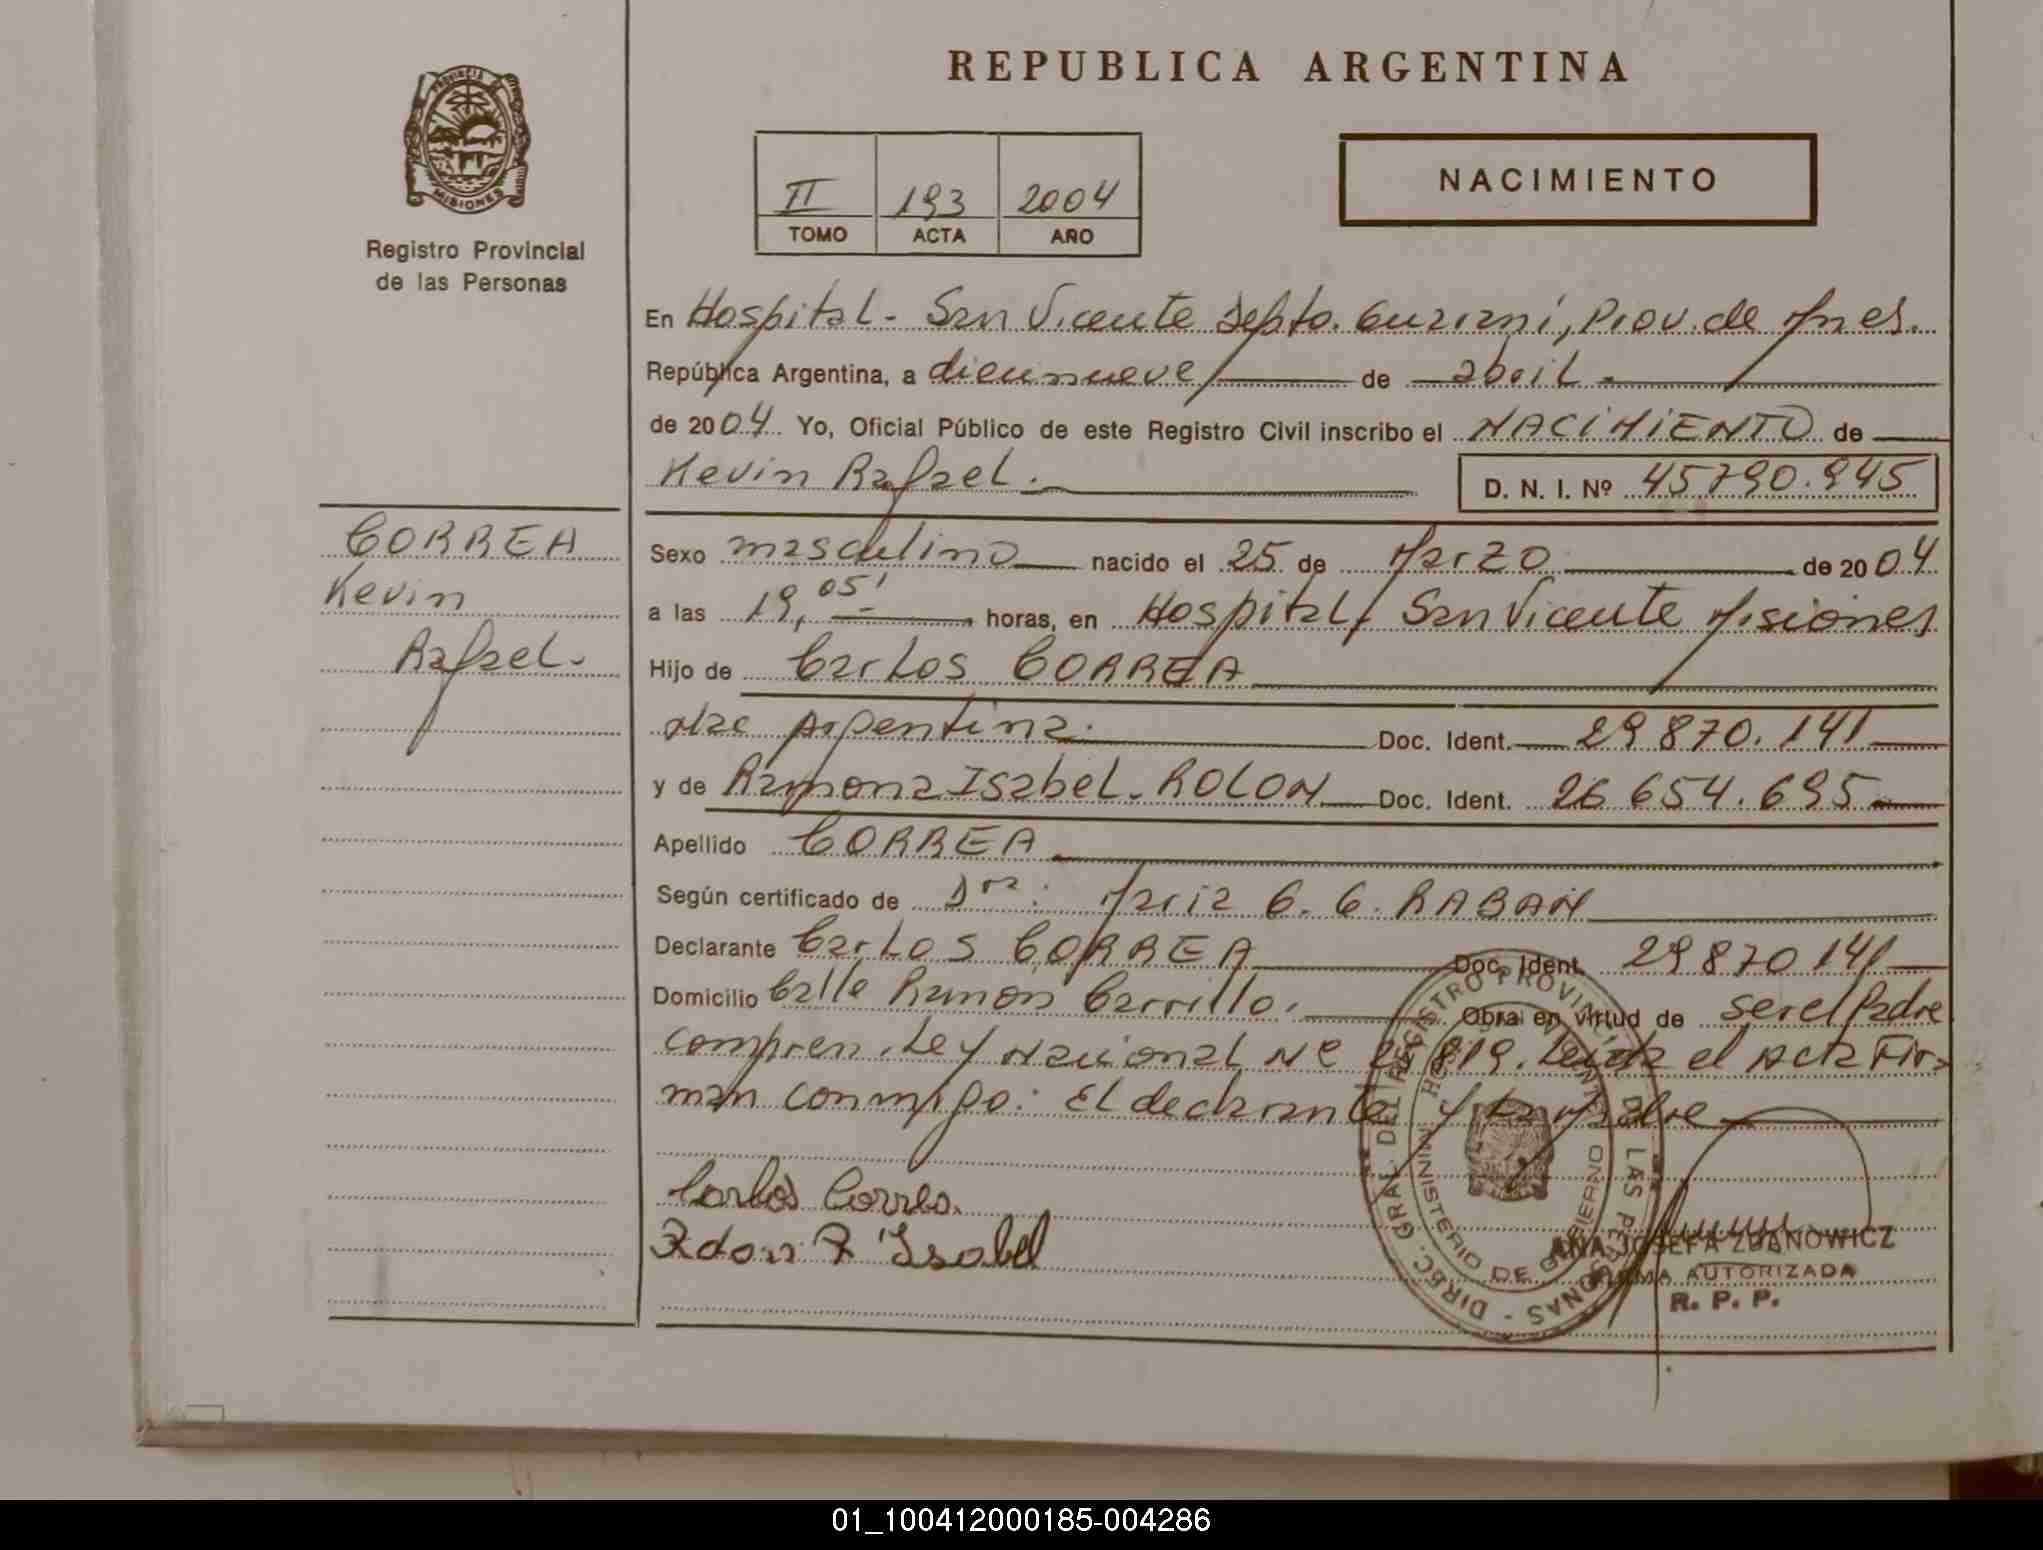 REPUBLICA ARGENTINA
PROVINCIA DE
MISIONES
Registro Provincial
de las Personas
II 193 2004
TOMO ACTA AÑO
NACIMIENTO
En Hospital - San Vicente Depto. Guaraní, Prov. de Mnes.
República Argentina, a diecinueve de abril
de 2004 Yo, Oficial Público de este Registro Civil inscribo el NACIMIENTO de
Kevin Rafael. D. N. I. Nº 45790.945
CORREA
Kevin
Rafael.
Sexo masculino nacido el 25 de Marzo de 2004
a las 19,05' horas, en Hospital, San Vicente Misiones
Hijo de Carlos CORREA
Nac Argentina. Doc. Ident. 29870.141
y de Ramona Isabel. ROLON Doc. Ident. 26654.695
Apellido CORREA
Según certificado de Dra: Maria C. G. RABAN
Declarante Carlos CORREA Doc. Ident. 29870141
Domicilio Calle Ramon Carrillo. Obra en virtud de ser el Padre
compren. Ley Nacional Nº 819. Leida el Acta Fir-
man conmigo: El declarante y la Madre
Carlos Correa.
Isabel
DIREC. GRAL. DEL REGISTRO PROVINCIAL DE LAS PERSONAS
MINISTERIO DE GOBIERNO
ANA JOSEFA ZDANOWICZ
FIRMA AUTORIZADA
R. P. P.
01_100412000185-004286